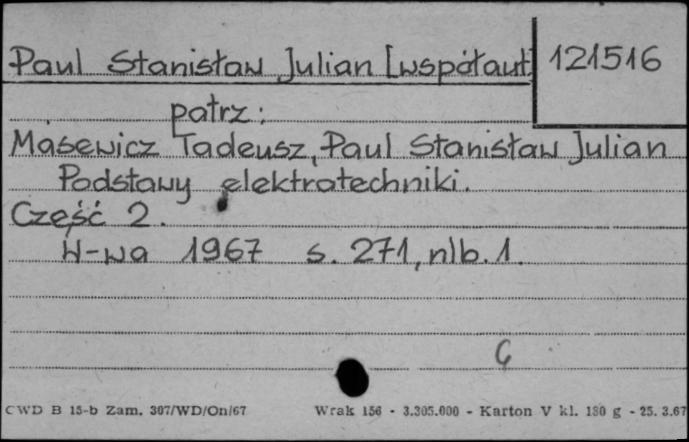 Paul Stanisław Julian [współaut] 121516
patrz:
Masewicz Tadeusz, Paul Stanisław Julian
Podstawy elektrotechniki.
Część 2.
W-wa 1967 s. 271, nlb. 1.
G
CWD B 15-b Zam. 307/WD/On/67 Wrak 156 - 3.305.000 - Karton V kl. 180 g - 25. 3.67